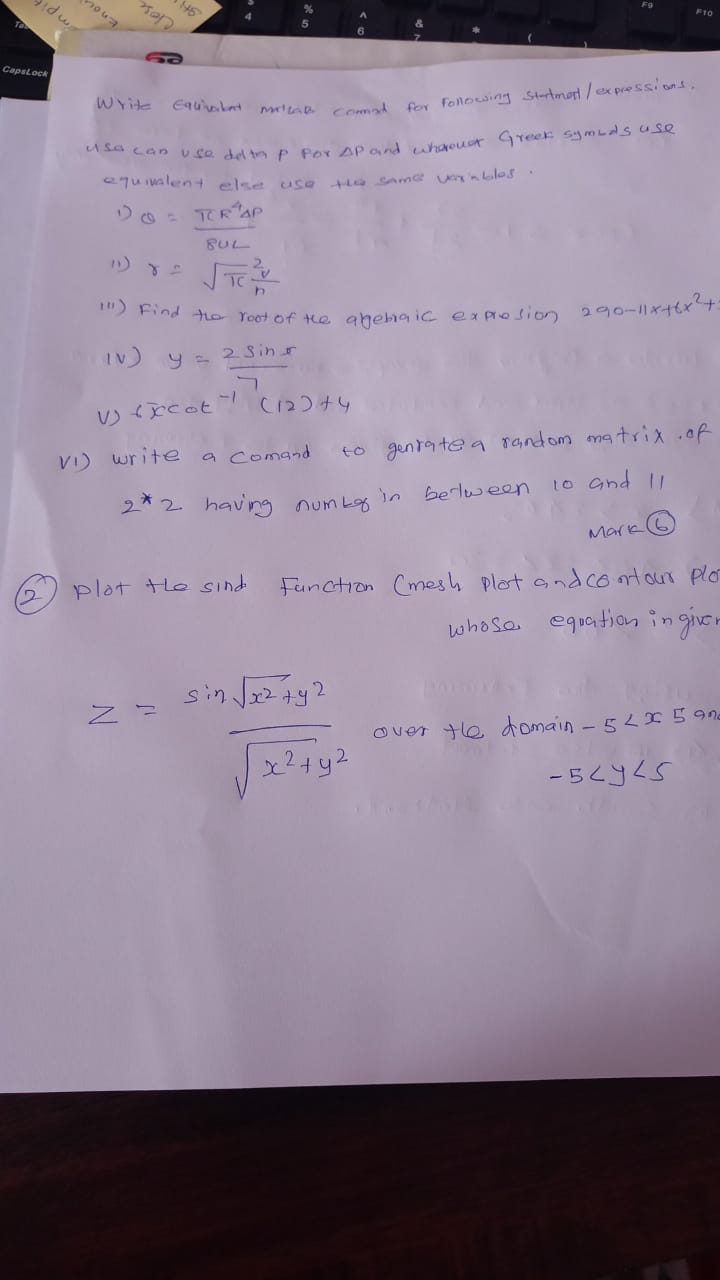 Write Equivalent matlab commd for Following Statment / expressions.
usa can use delta p For ΔP and wharever Greek symbols use
equivalent else use the same variables.
i) Q = πR⁴ΔP
8UL
ii) r = √π 2v
n
iii) Find the root of the algebraic expression 290-11x+6x²+
iv) y = 2 sin x
7
v) cot⁻¹ (12)+4
vi) write a comand to genrate a random matrix of
2*2 having number in between 10 and 11
Mark 6
2 plot the sind Function (mesh plot and contour plo
whose equation in given
Z = sin √x²+y²
√x²+y²
over the domain -5<x 5 and
-5<y<5
CapsLock
% 5
^ 6
& 7
*
(
)
4
F9
F10
close